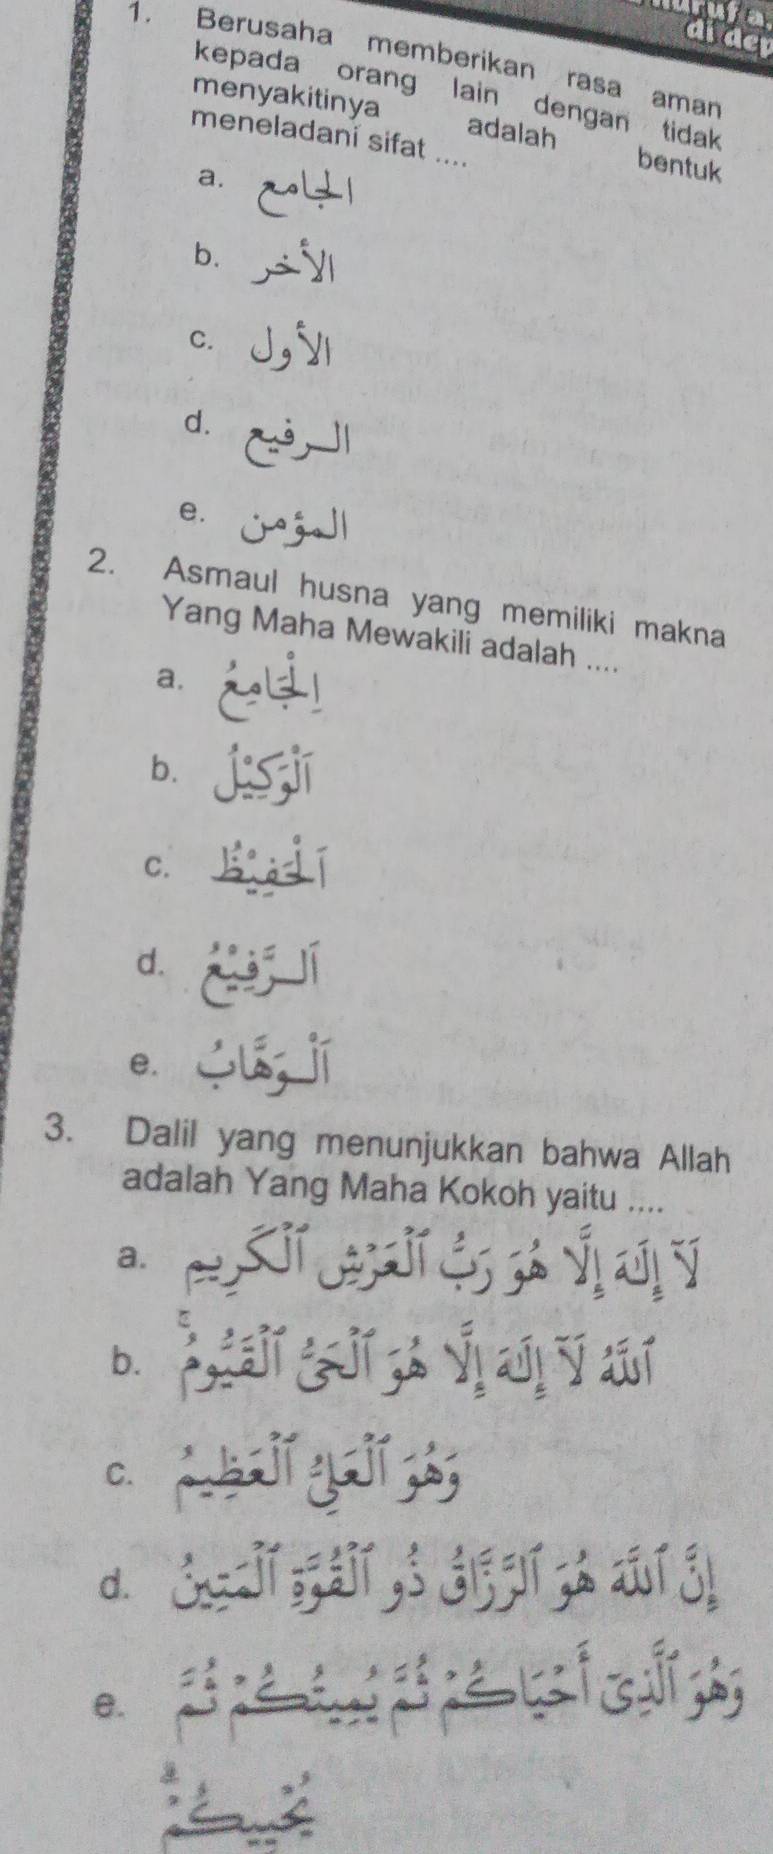 huruf a,
di dep
1. Berusaha memberikan rasa aman
kepada orang lain dengan tidak
menyakitinya adalah bentuk
meneladani sifat ....
a. الجامع
b. الأخر
c. الأول
d. الرفيع
e. المؤمن
2. Asmaul husna yang memiliki makna
Yang Maha Mewakili adalah ....
a. اَلْجَامِعُ
b. اَلْوَكِيْلُ
c. اَلْحَفِيْظُ
d. اَلرَّفِيْعُ
e. اَلْوَهَّابُ
3. Dalil yang menunjukkan bahwa Allah
adalah Yang Maha Kokoh yaitu ....
a. لَآ إِلَٰهَ إِلَّا هُوَ رَبُّ ٱلْعَرْشِ ٱلْكَرِيمِ
b. ٱللَّهُ لَآ إِلَٰهَ إِلَّا هُوَ ٱلْحَىُّ ٱلْقَيُّومُ ۚ
c. وَهُوَ ٱلْعَلِىُّ ٱلْعَظِيمُ
d. إِنَّ ٱللَّهَ هُوَ ٱلرَّزَّاقُ ذُو ٱلْقُوَّةِ ٱلْمَتِينُ
e. وَهُوَ ٱلَّذِىٓ أَحْيَاكُمْ ثُمَّ يُمِيتُكُمْ ثُمَّ
يُحْيِيكُمْ ۗ